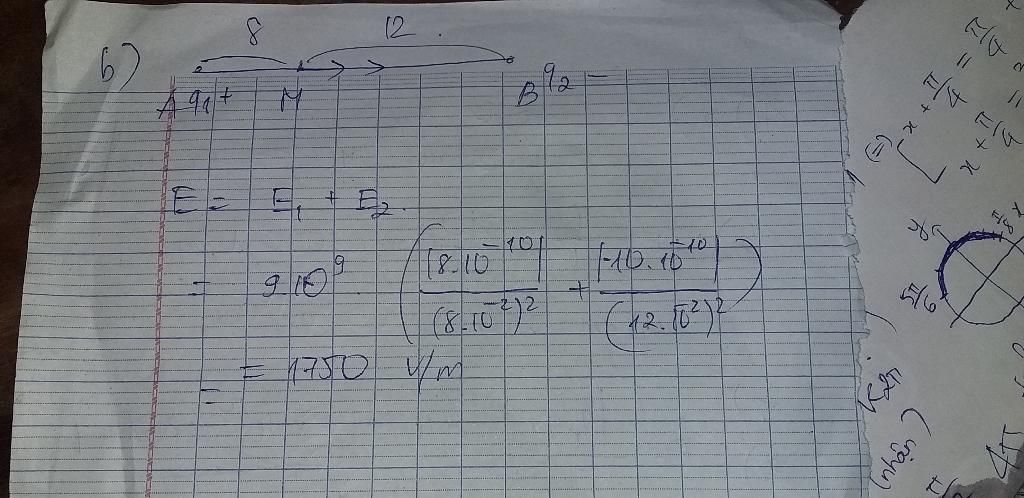 b)
8 12.
A q₁ + M B q₂ −
E = E₁ + E₂.
= 9.10⁹ (|8.10⁻¹⁰| / (8.10⁻²)² + |-10.10⁻¹⁰| / (12.10⁻²)²)
= = 1750 V/m
(=) [ x + π/4 = π/4
x + π/4 =
5π/6
k2π
(nhận)
4π